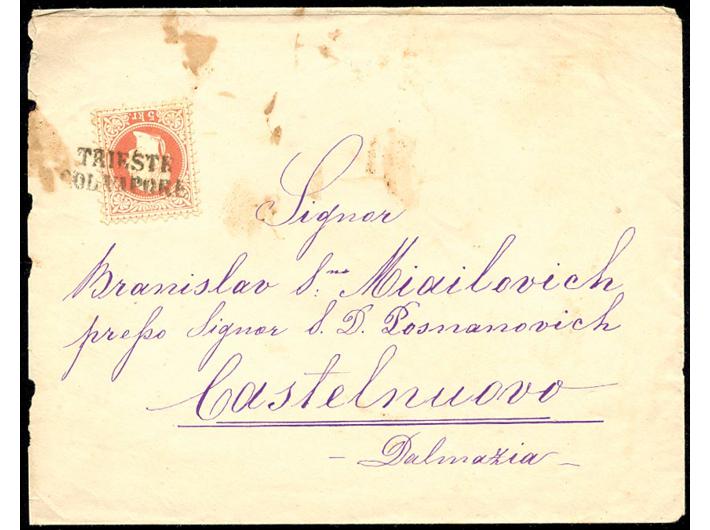 5 kr.
TRIESTE
COL VAPORE
Signor
Branislav S.mo Miailovich
preßo Signor S. D. Posnanovich
Castelnuovo
- Dalmazia -